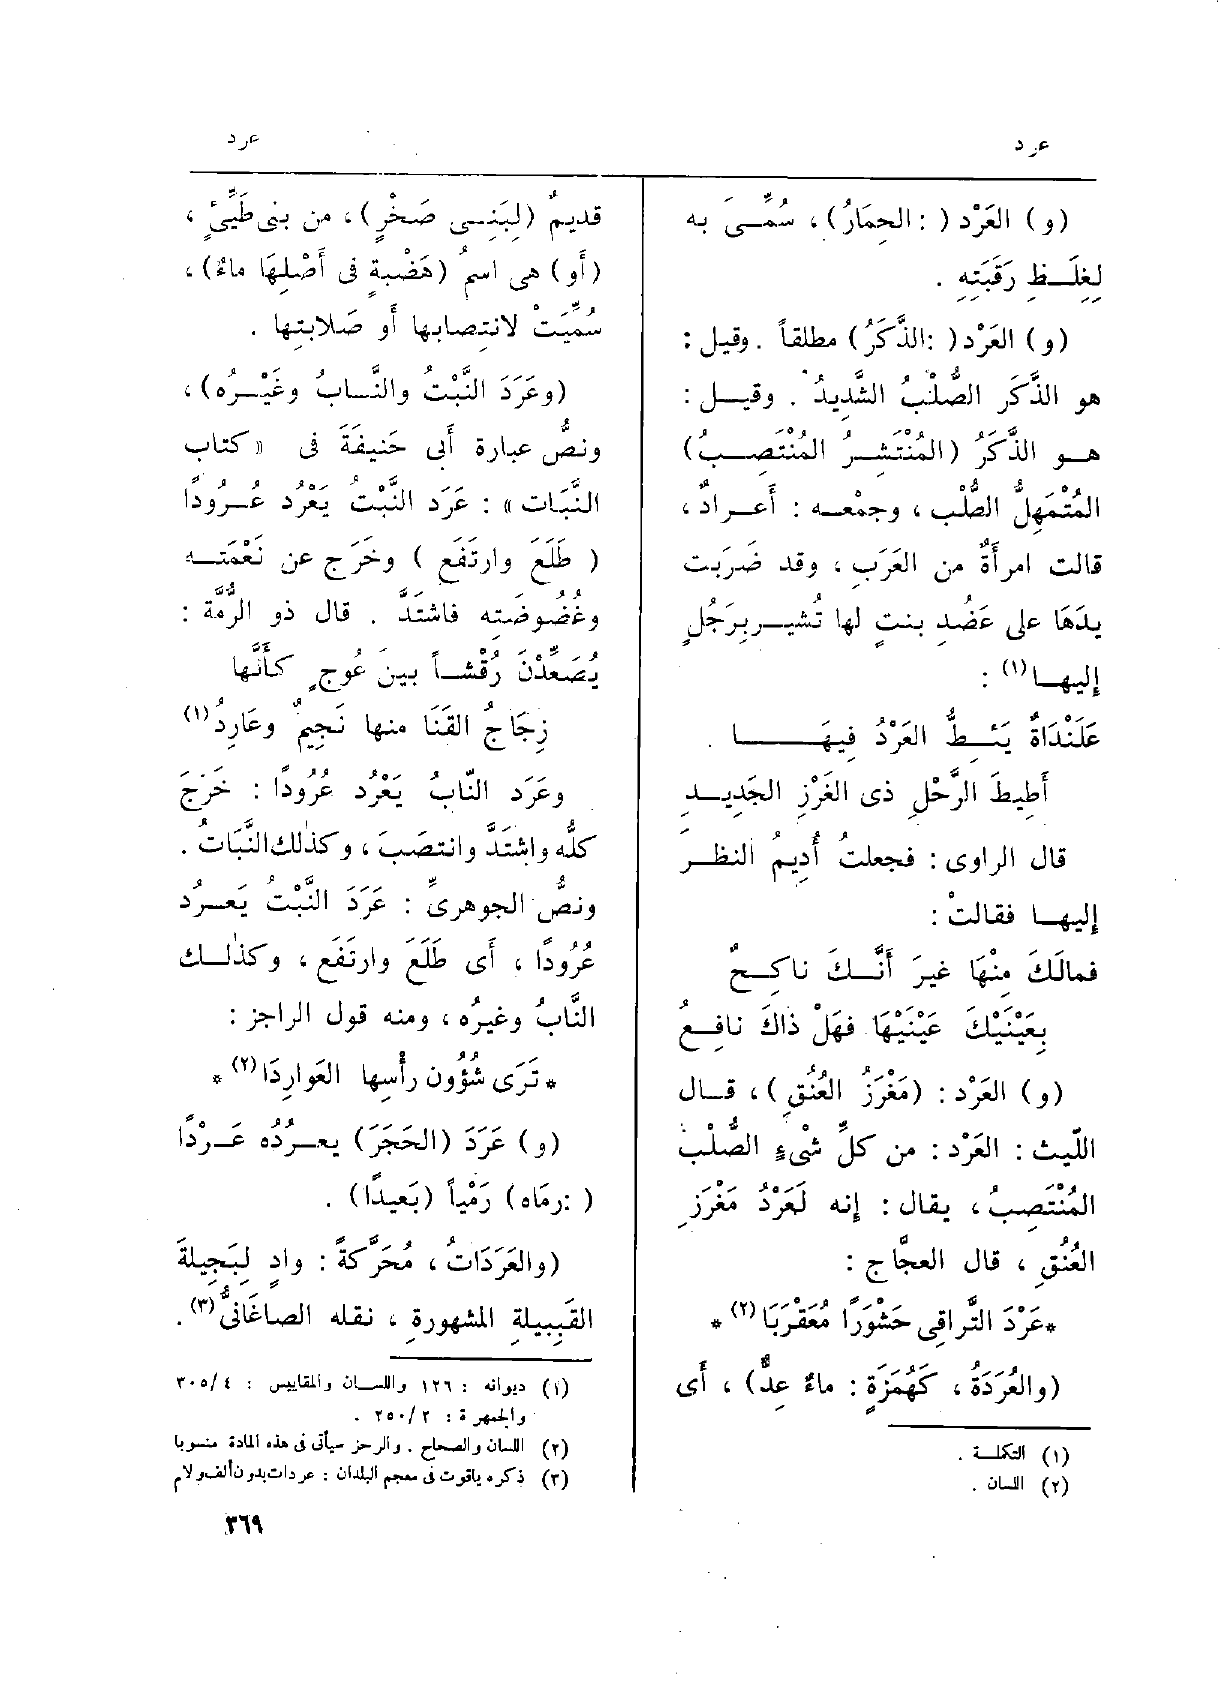 عرد
عرد
(و) العَرْد ( : الحِمَارُ) ، سُمِّىَ به
لِغِلَظِ رَقَبَتِه .
(و) العَرْد( :الذَّكَرُ) مطلقاً . وقيل :
هو الذَّكَر الصُّلْبُ الشَّدِيدُ . وقيل :
هو الذَّكَرُ (المُنْتَشِرُ المُنْتَصِبُ)
المُتْمَهِلُّ الصُّلب ، وجمْعه : أَعرادٌ ،
قالت امرأَةٌ من العَرَبِ ، وقد ضَرَبت
يدَهَا على عَضُدِ بنتٍ لها تُشير برَجُلٍ
إليها (١) :
عَلَنْدَاةٌ يَئِطُّ العَرْدُ فِيهَا .
أَطِيطَ الرَّحْلِ ذى الغَرْزِ الجَدِيدِ
قال الراوى : فجعلتُ أُدِيمُ النظر
إليها فقالتْ :
فمالَكَ مِنْهَا غيرَ أَنَّكَ ناكِحٌ
بِعَيْنَيْكَ عَيْنَيْهَا فهَلْ ذاكَ نافِعُ
(و) العَرْد : (مَغْرَزُ العُنُقِ) ، قال
اللّيث : العَرْد : من كلِّ شْىءٍ الصُّلْبُ
المُنْتَصِبُ ، يقال : إنه لَعَرْدُ مَغْرَزِ
العُنُقِ ، قال العجَّاج :
*عَرْدَ التَّراقِى حَشْوَرًا مُعَقْرَبَا (٢) *
(والعُرَدَةُ ، كَهُمَزَةٍ : ماءٌ عِدٌّ) ، أى
(١) التكملة .
(٢) اللسان .
قديمٌ (لِبَنِى صَخْرٍ) ، من بنى طَيِّئٍ ،
(أَو) هى اسمُ (هَضْبةٍ فى أَصْلِهَا ماءٌ) ،
سُمِّيَتْ لانتِصابها أَو صَلابتِها .
(وعَرَدَ النَّبْتُ والنَّابُ وغَيْرُه) ،
ونصُّ عبارة أَبى حَنِيفَةَ فى « كتاب
النَّبَات » : عَرَد النَّبْتُ يَعْرُد عُرُودًا
( طَلَعَ وارتَفَع ) وخَرَج عن نَعْمَتِه
وغُضُوضَتِه فاشتَدَّ . قال ذو الرُّمَّة :
يُصَعِّدْنَ رُقْشاً بينَ عُوجٍ كأَنَّها
زِجَاجُ القَنَا منها نَجِيمٌ وعَارِدُ (١)
وعَرَد النّابُ يَعْرُد عُرُودًا : خَرَجَ
كلُّه واشتَدَّ وانتصَبَ ، وكذٰلك النَّبَاتُ .
ونصُّ الجوهرىِّ : عَرَدَ النَّبْتُ يَعرُد
عُرُودًا ، أَى طَلَعَ وارتَفَع ، وكذٰلك
النَّابُ وغيرُه ، ومنه قول الراجز :
* تَرَى شُؤُونَ رأْسِها العَوارِدَا (٢) *
(و) عَرَدَ (الحَجَرَ) يعرُدُه عَرْدًا
( :رماه) رَمْياً (بَعيدًا) .
(والعَرَدَاتُ ، مُحَرَّكةً : وادٍ لِبَجِيلةَ
القَبِيلةِ المشهورةِ ، نقله الصاغَانىُّ (٣) .
(١) ديوانه : ١٢٦ واللسان والمقاييس : ٤/ ٣٠٥
والجمهرة : ٢/ ٢٥٠ .
(٢) اللسان والصحاح . والرجز سيأتى فى هذه المادة منسوبا
(٣) ذكره ياقوت فى معجم البلدان : عردات بدون ألف ولام
٣٦٩